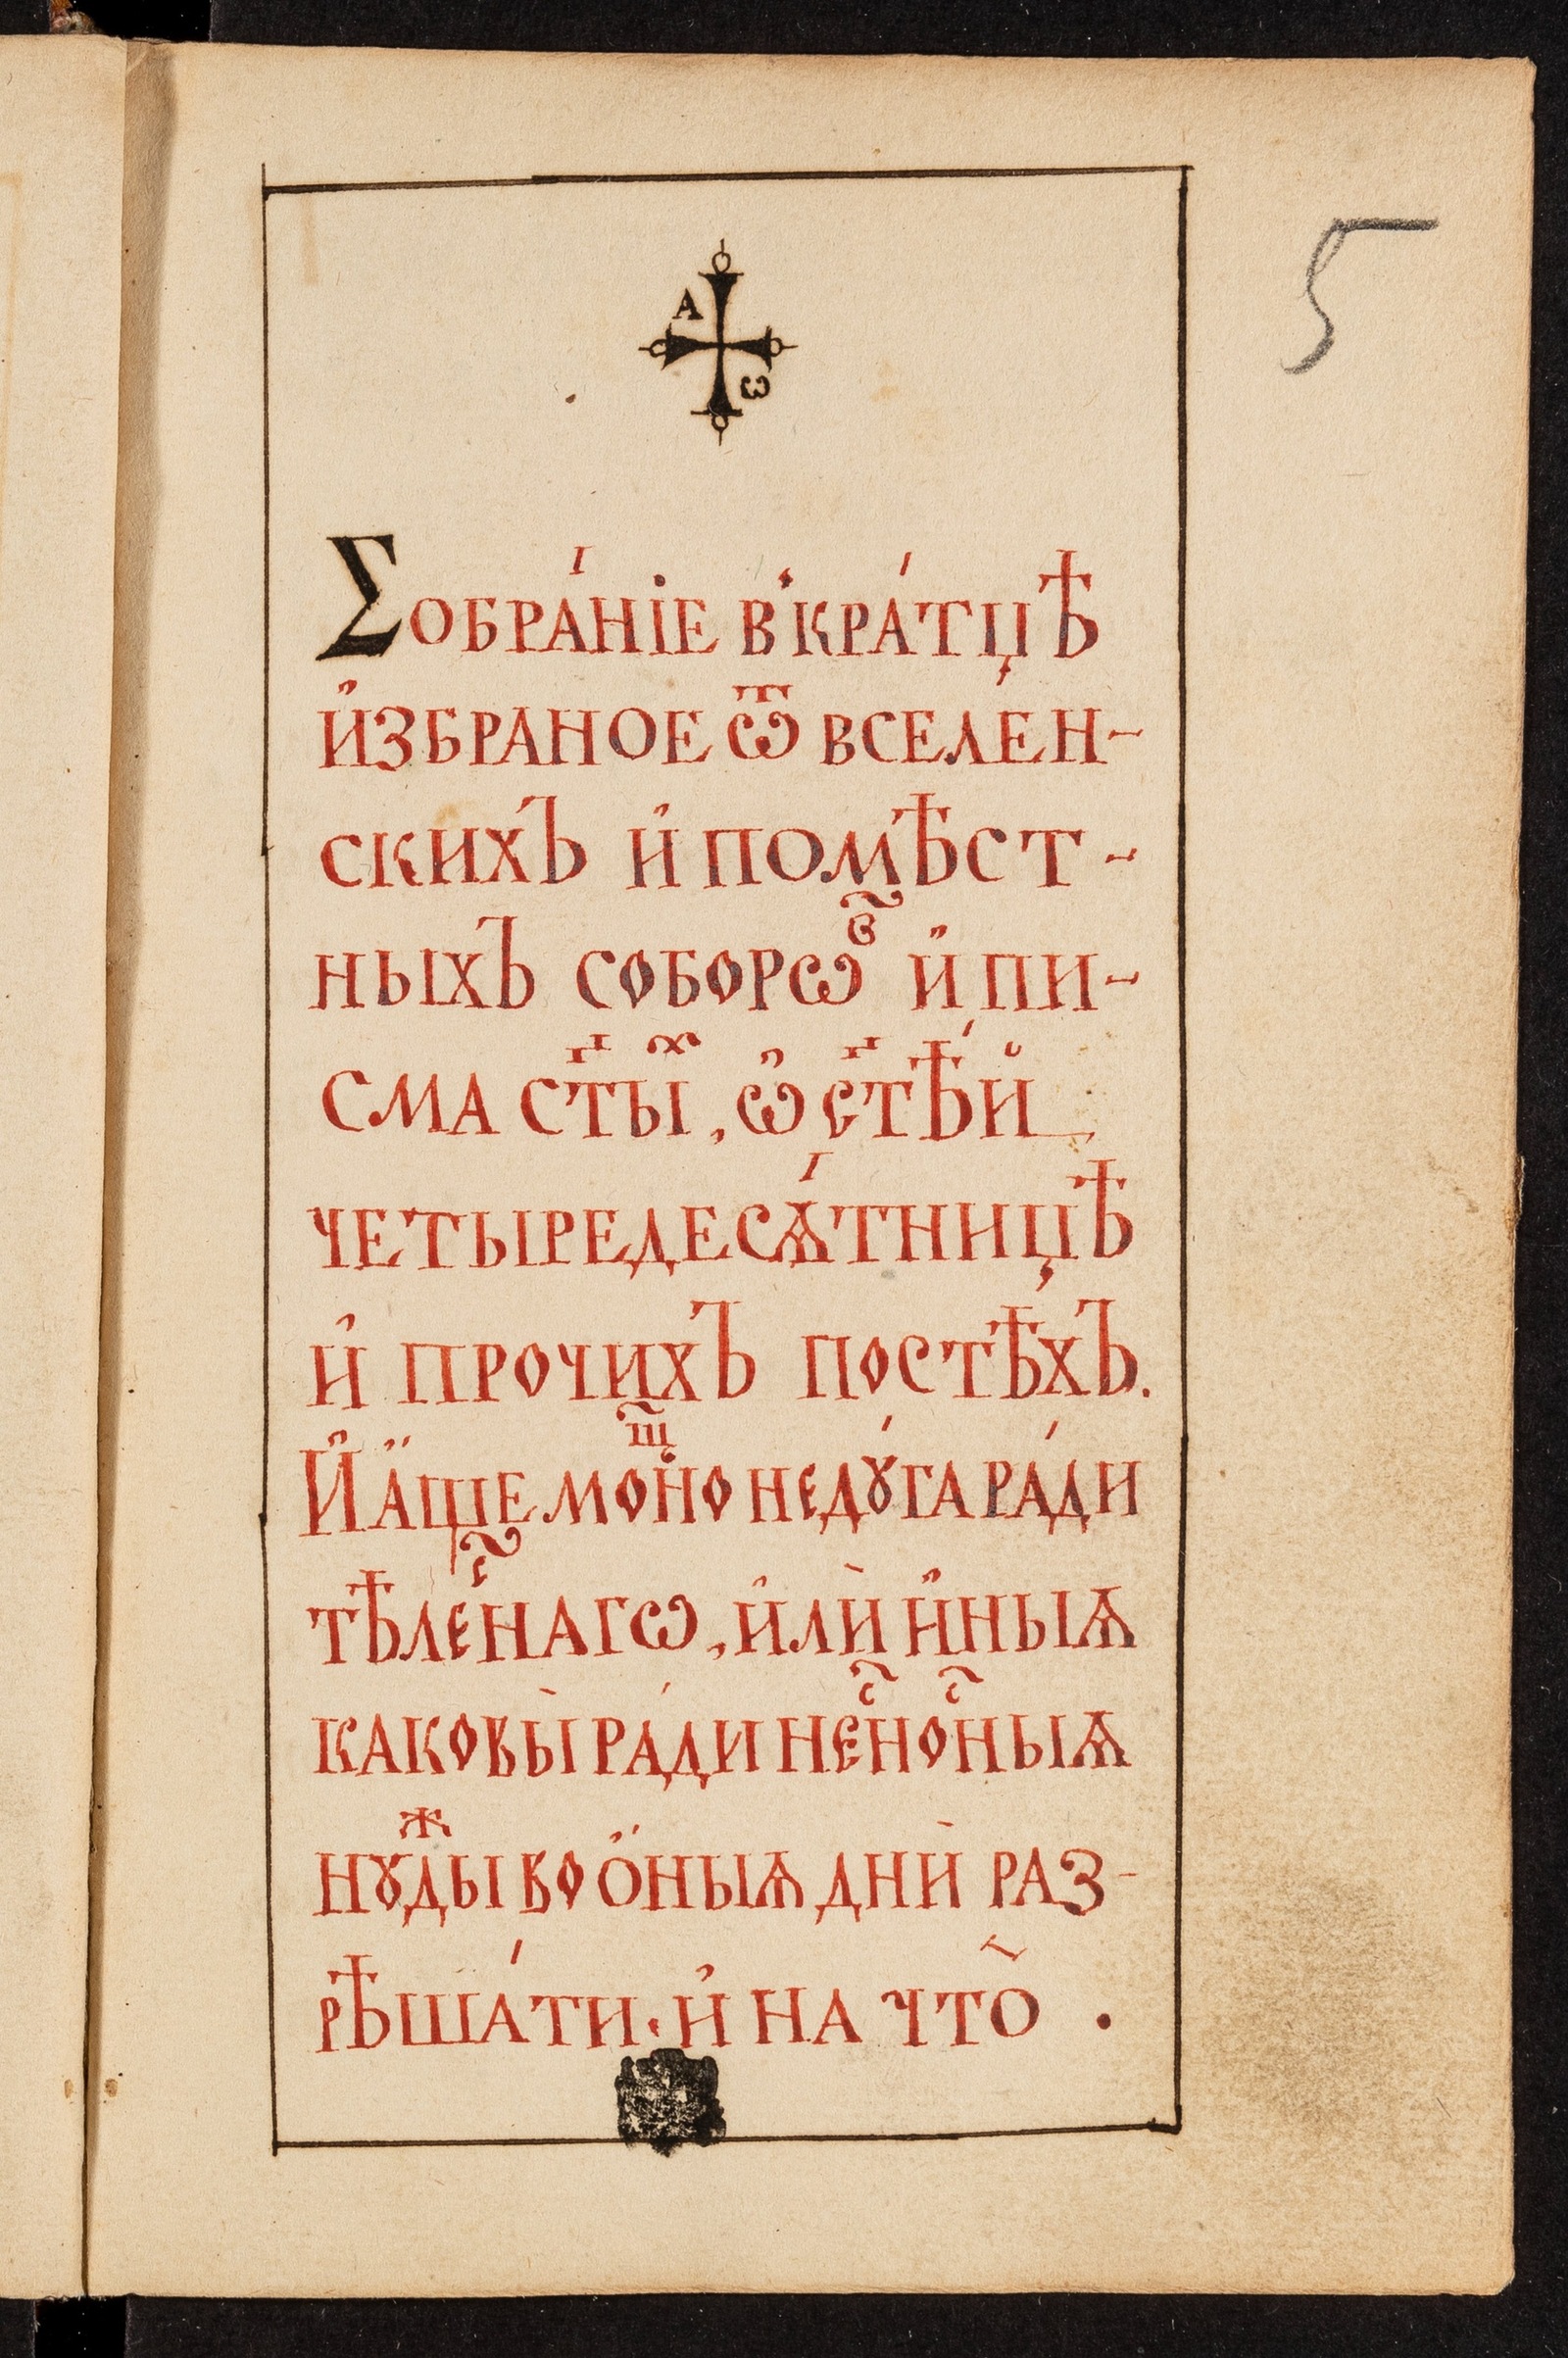 5
А
ѡ
Ꙁобра́нїе в̾кра́тцѣ
и҆збраное ѿ вселе́н-
скихъ и҆ помѣст-
ныхъ соборѡⷡ҇ и҆ пи-
сма ст҃ыⷯ, ѡ҆ ст҃ѣ́й
четыредесѧ́тницѣ
и҆ прочихъ постѣ́хъ.
И҆ а҆ще моⷳ҇но недꙋ́га ра́ди
тѣлеⷭ҇наго̀, и҆лѝ и҆́ныѧ
каковы̀ ра́ди неⷭ҇ноⷭ҇ныѧ
нꙋⷤды во ѻ҆ныѧ днѝ раз-
рѣша́ти. и҆ на что̀.